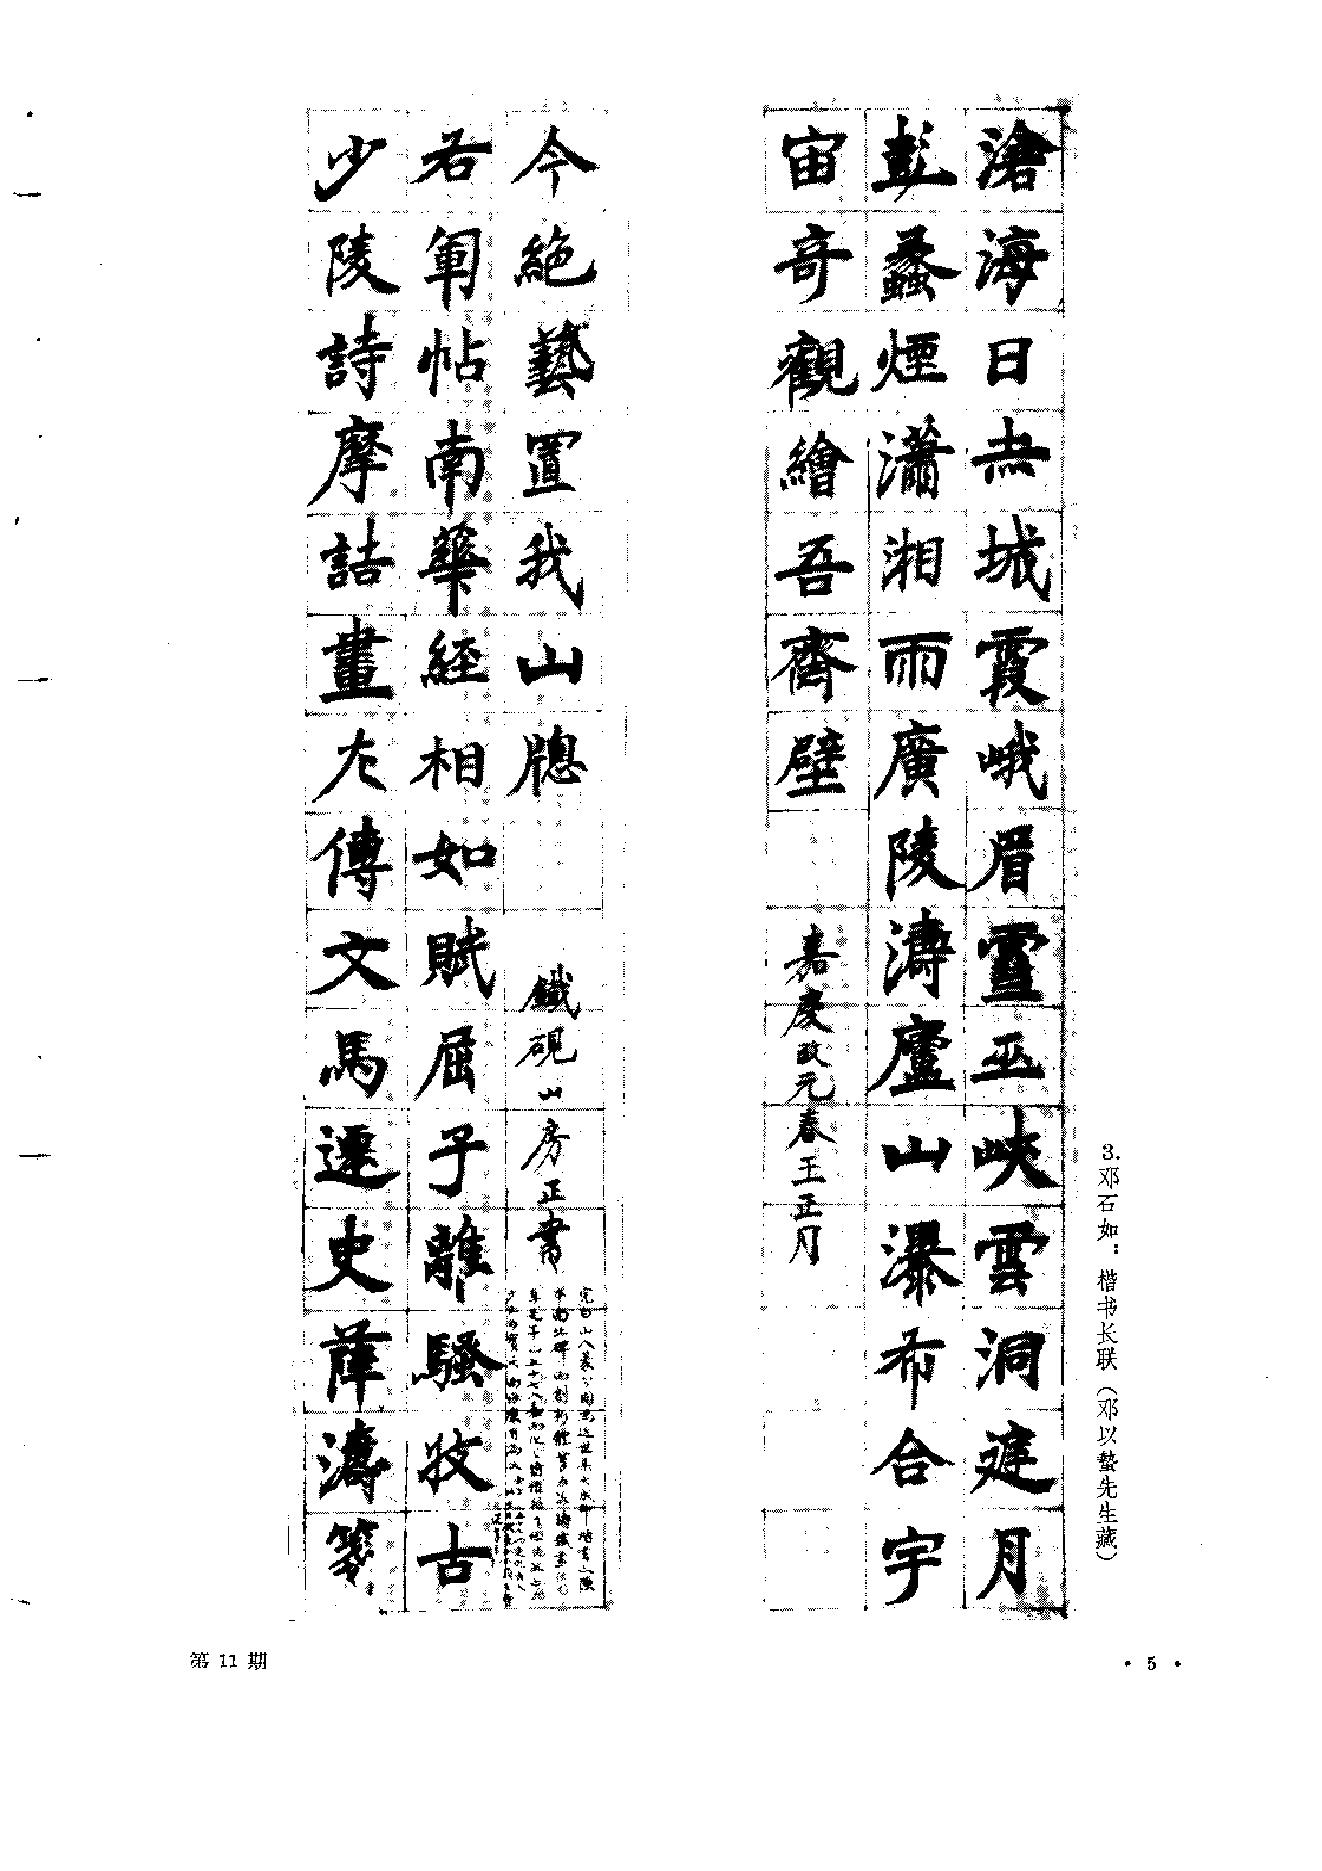 滄海日赤城霞峨眉雪巫峽雲洞庭月
彭蠡煙瀟湘雨廣陵濤廬山瀑布合宇
宙奇觀繪吾齋壁
嘉慶改元春王正月
少陵詩摩詰畫左傳文馬遷史薛濤箋
右軍帖南華經相如賦屈子離騷收古
今絕藝置我山牕
鐵硯山房正書
3.邓石如:楷书长联(邓以蛰先生藏)
第 11 期
· 5 ·